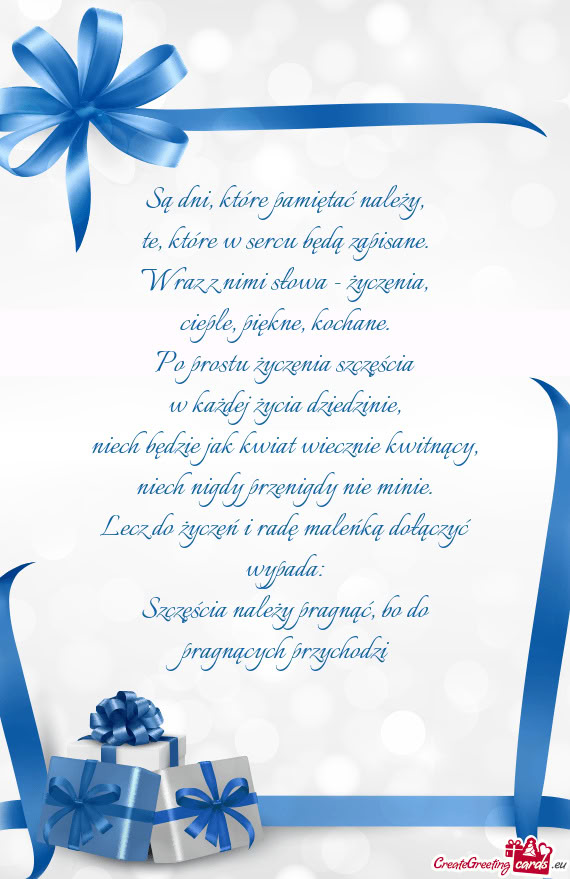 Są dni, które pamiętać należy,
te, które w sercu będą zapisane.
Wraz z nimi słowa - życzenia,
ciepłe, piękne, kochane.
Po prostu życzenia szczęścia
w każdej życia dziedzinie,
niech będzie jak kwiat wiecznie kwitnący,
niech nigdy przenigdy nie minie.
Lecz do życzeń i radę maleńką dołączyć
wypada:
Szczęścia należy pragnąć, bo do
pragnących przychodzi
CreateGreeting cards .eu